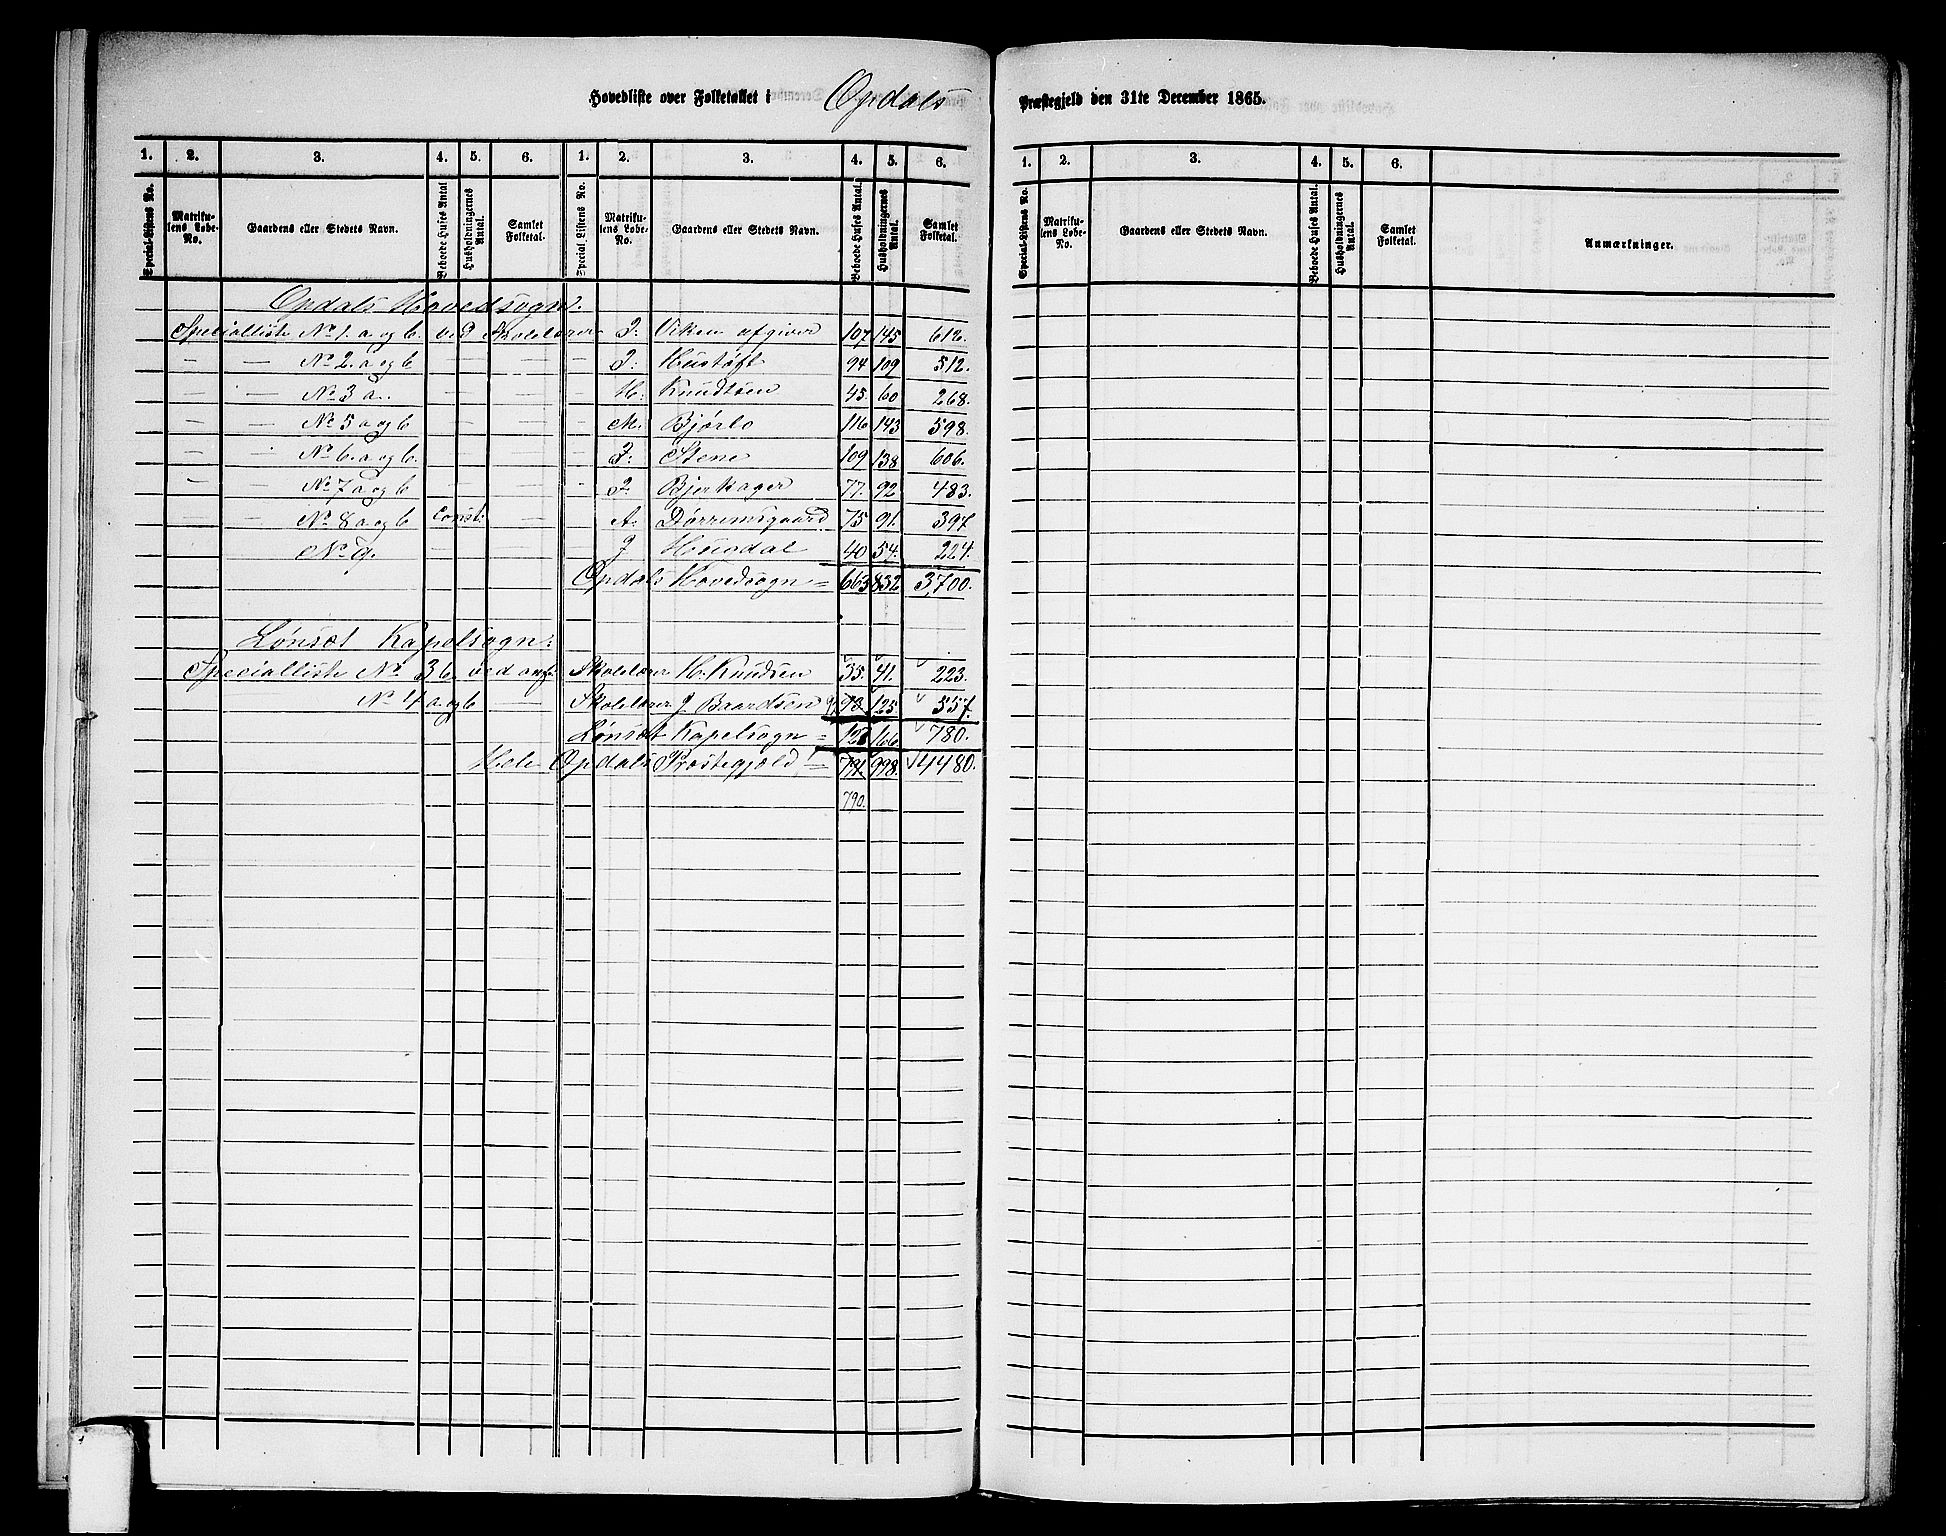 Hovedliste over Folketallet i Opdals Præstegjeld den 31te December 1865.
1. 2. 3. 4. 5. 6. 1. 2. 3. 4. 5. 6. 1. 2. 3. 4. 5. 6.
Special-Listens No. Matrikulens Løbe-No. Gaardens eller Stedets Navn. Beboede Huses Antal Husholdningernes Antal. Samlet Folketal. Special Listens No. Matrikulens Løbe-No. Gaardens eller Stedets Navn. Beboede Huses Antal. Husholdningernes Antal. Samlet Folketal. Special-Listens No. Matrikulens Løbe-No. Gaardens eller Stedets Navn. Beboede Huses Antal. Husholdningernes Antal. Samlet Folketal. Anmærkninger.
Opdals Hovedsogn:
Specialliste No 1. a og b. ved Skolelærer J: Viken afgiver 107 145 612.
— — No 2. a og b — — — — J: Hustøft 94 109 512.
— — No 3 a. — — — — H. Knudtsen 45. 60 268.
— — No 5 a og b — — — — M. Bjørlo 116 143 598.
— — No 6. a og b. — — — — J: Stene 109 138 606.
— — No 7 a og b — — — — J. Bjerkager 77. 92 483.
— — No 8 a og b const. — — A. Dørremsgaard 75 91. 397
No 9. — — — — J Husdal 40 54. 224.
Opdals Hovedsogn = 663 832 3,700.
Lønset Kapelsogn:
Specialliste No 3 b. ved Skolelærer H. Knudsen 35. 41. 223.
No 4 a og b — Skolelærer J Baardsen 125. 557.
Lønset Kapelsogn = 166 780.
Hele Opdals Præstegjeld = 998. 4480.
790.